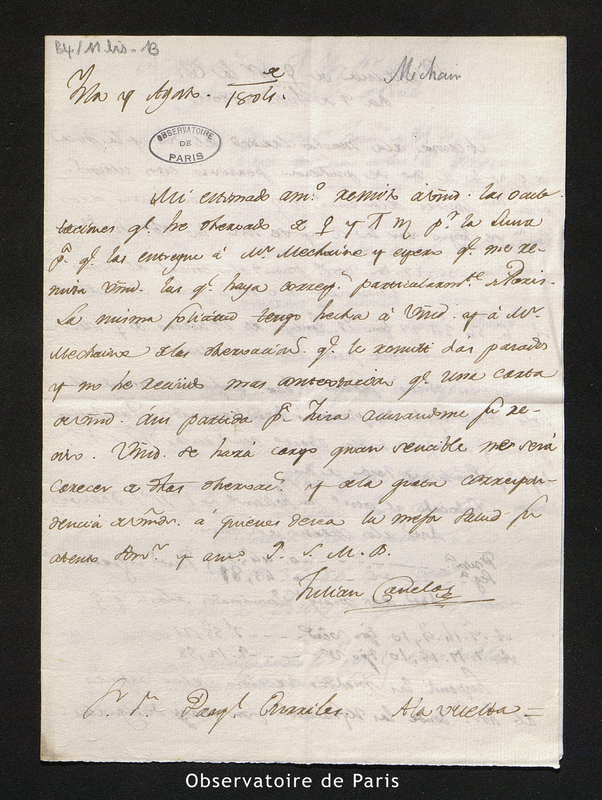 B4/11 bis - 13
Méchain
Yta y Agosto. 1804.
OBSERVATOIRE
DE
PARIS
Mi estimado amº. remito á Vmd. las ocul-
taciones qe. he observado de ♀ y π ♏ pr. la Luna
pª. qe. las entregue á Mr. Mechaine y espero qe. me re-
mita Vmd. las qe. haya correspª. particularmte. Paris.
La misma solicitud tengo hecha á Vmd. y á Mr.
Mechaine de las observacions. qe. le remiti dias pasados
y no he recivido mas contestacion qe. una carta
de Vmd. á su partida pª. avisandome su re-
tiro. Vmd. se hará cargo quan sencible me será
carecer de dhas observacs. y de la grata correspon-
dencia de Vmds. á quienes desea la mejor salud su
atento Servr. y amo. Q. S. M. B.
Julian Canelas
Sr. Dn. Pasql. Enrrile. A la vuelta =
Observatoire de Paris